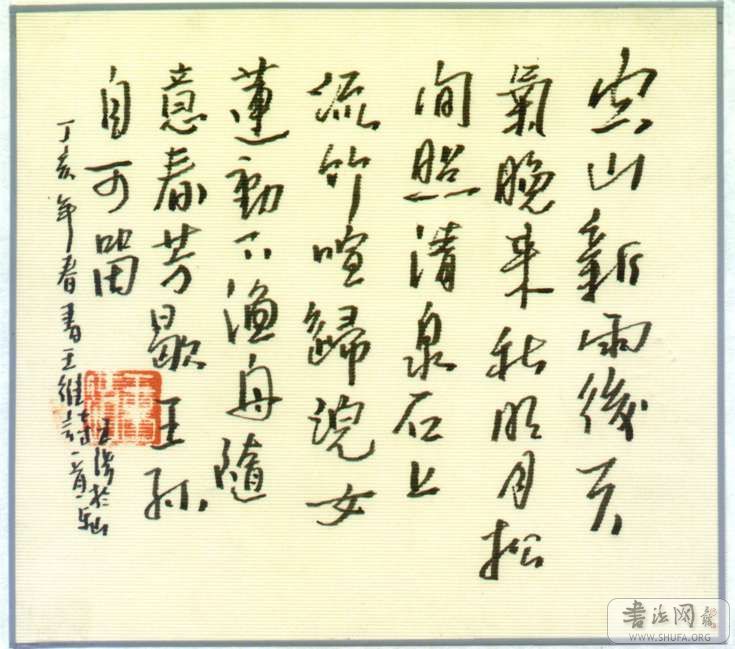 空山新雨後天
氣晚来秋明月松
间照清泉石上
流竹喧歸浣女
蓮動下漁舟隨
意春芳歇王孫
自可留
丁亥年春書王維詩一首
書法网
WWW.SHUFA.ORG